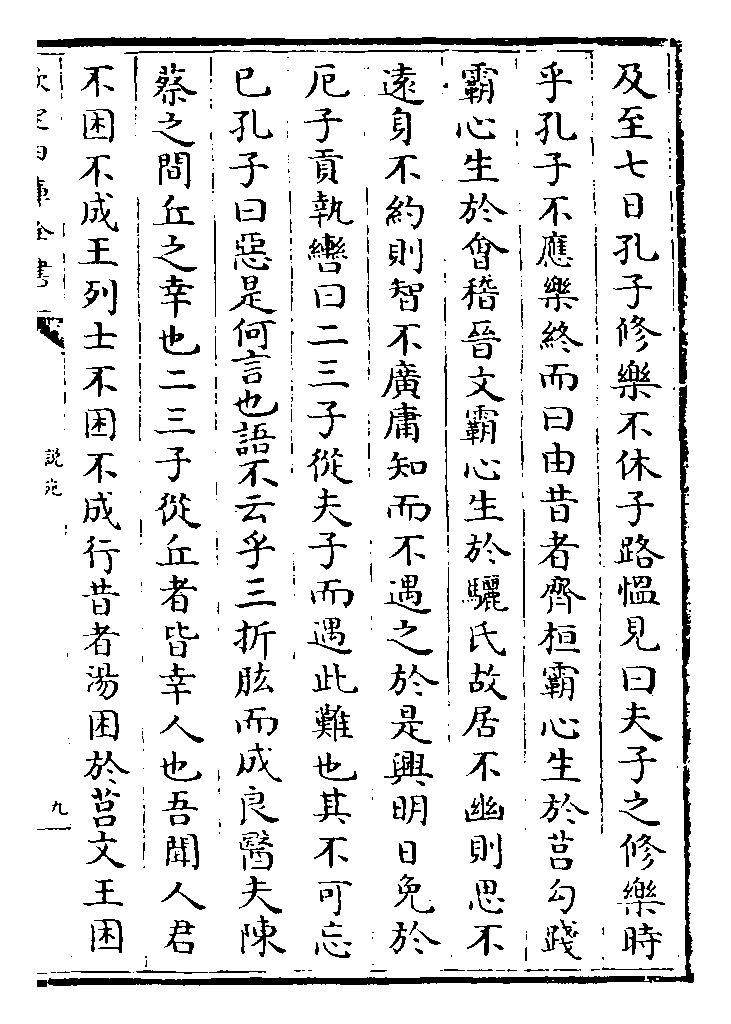 及至七日孔子修樂不休子路慍見曰夫子之修樂時
乎孔子不應樂終而曰由昔者齊桓霸心生於莒勾踐
霸心生於㑹稽晉文霸心生於驪氏故居不幽則思不
逺身不約則智不廣庸知而不遇之於是興明日免於
厄子貢執轡曰二三子從夫子而遇此難也其不可忘
已孔子曰惡是何言也語不云乎三折肱而成良醫夫陳
蔡之間丘之幸也二三子從丘者皆幸人也吾聞人君
不困不成王列士不困不成行昔者湯困於莒文王困
欽定四庫全書
說苑
九